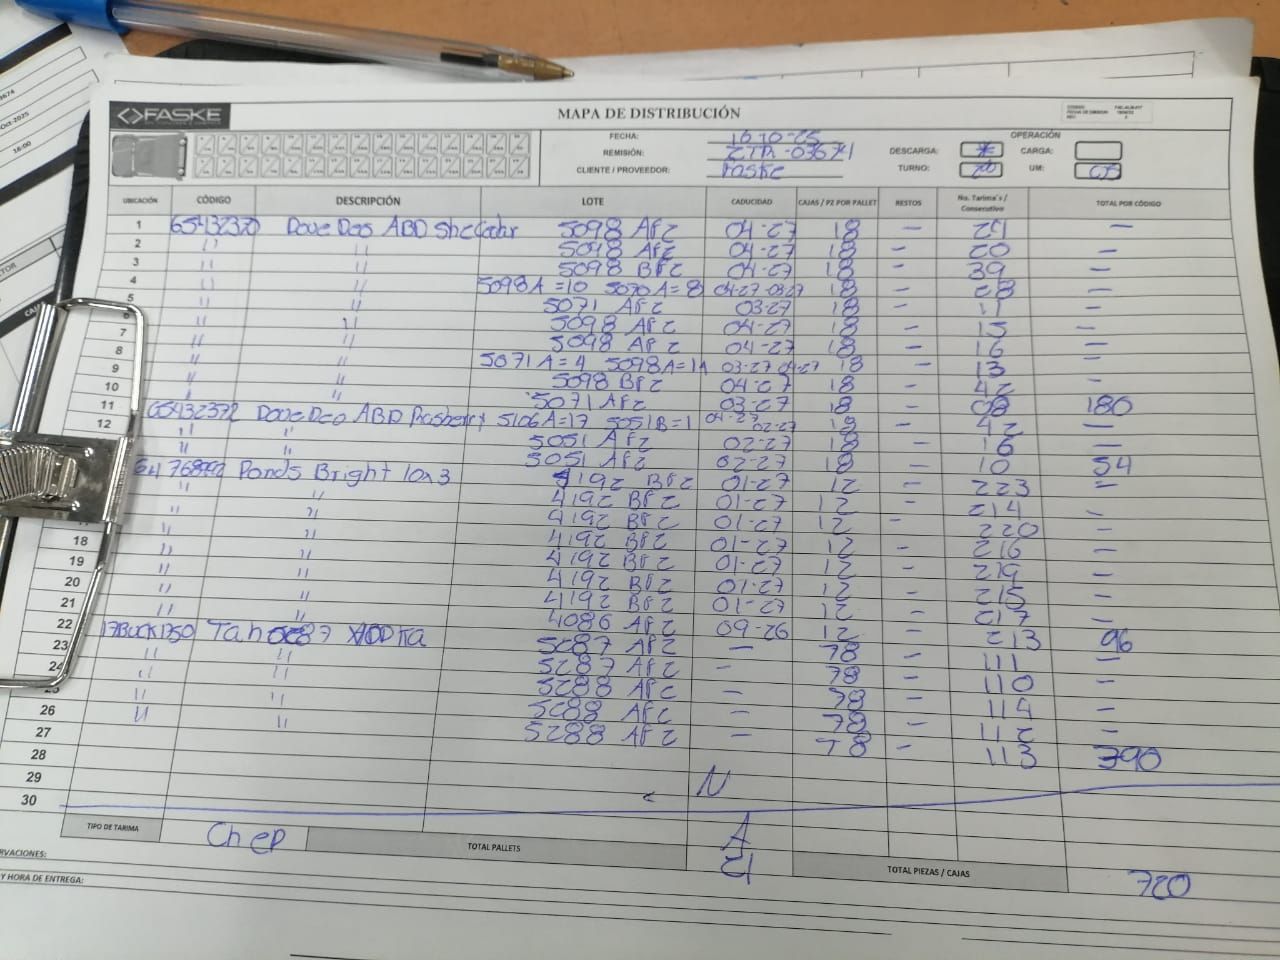 FASKE
MAPA DE DISTRIBUCIÓN
OPERACIÓN
FECHA: 16-10-25
REMISIÓN: ZTR-03674 DESCARGA: CARGA:
CLIENTE / PROVEEDOR: Faske TURNO: 2o UM:
UBICACIÓN CÓDIGO DESCRIPCIÓN LOTE CADUCIDAD CAJAS / PZ POR PALLET RESTOS No. Tarima's / Consecutivo TOTAL POR CÓDIGO
1 65432370 Dove Deo ABD 5098 AFZ 04-27 18 - 24 -
2 '' '' 5098 AFZ 04-27 18 - 20 -
3 '' '' 5098 BFZ 04-27 18 - 39 -
4 '' '' 5098A =10 5070A = 8 04-27 03-27 18 - 28 -
5 '' '' 5071 AFZ 03-27 18 - 11 -
6 '' '' 5098 AFZ 04-27 18 - 15 -
7 '' '' 5098 AFZ 04-27 18 - 16 -
8 '' '' 5071A=4 5098A=14 03-27 04-27 18 - 13 -
9 '' '' 5098 BFZ 04-27 18 - 42 -
10 '' '' 5071 AFZ 03-27 18 - 08 180
11 65432372 Dove Deo ABD 5106A=17 5051B=1 04-27 02-27 18 - 42 -
12 '' '' 5051 AFZ 02-27 18 - 16 -
5051 AFZ 02-27 18 - 10 54
Ponds Bright 10x3 4192 BFZ 01-27 12 - 223 -
'' '' 4192 BFZ 01-27 12 - 214 -
'' '' 4192 BFZ 01-27 12 - 220 -
'' '' 4192 BFZ 01-27 12 - 216 -
18 '' '' 4192 BFZ 01-27 12 - 219 -
19 '' '' 4192 BFZ 01-27 12 - 215 -
20 '' '' 4192 BFZ 01-27 12 - 217 -
21 '' '' 4086 AFZ 09-26 12 - 213 96
22 5287 AFZ - 78 - 111 -
23 '' '' 5287 AFZ - 78 - 110 -
24 '' '' 5288 AFZ - 78 - 114 -
25 '' '' 5288 AFZ - 78 - 112 -
26 '' '' 5288 AFZ - 78 - 113 390
27
28
29 N
30
TIPO DE TARIMA Chep TOTAL PALLETS A
TOTAL PIEZAS / CAJAS 720
VACIONES:
Y HORA DE ENTREGA: